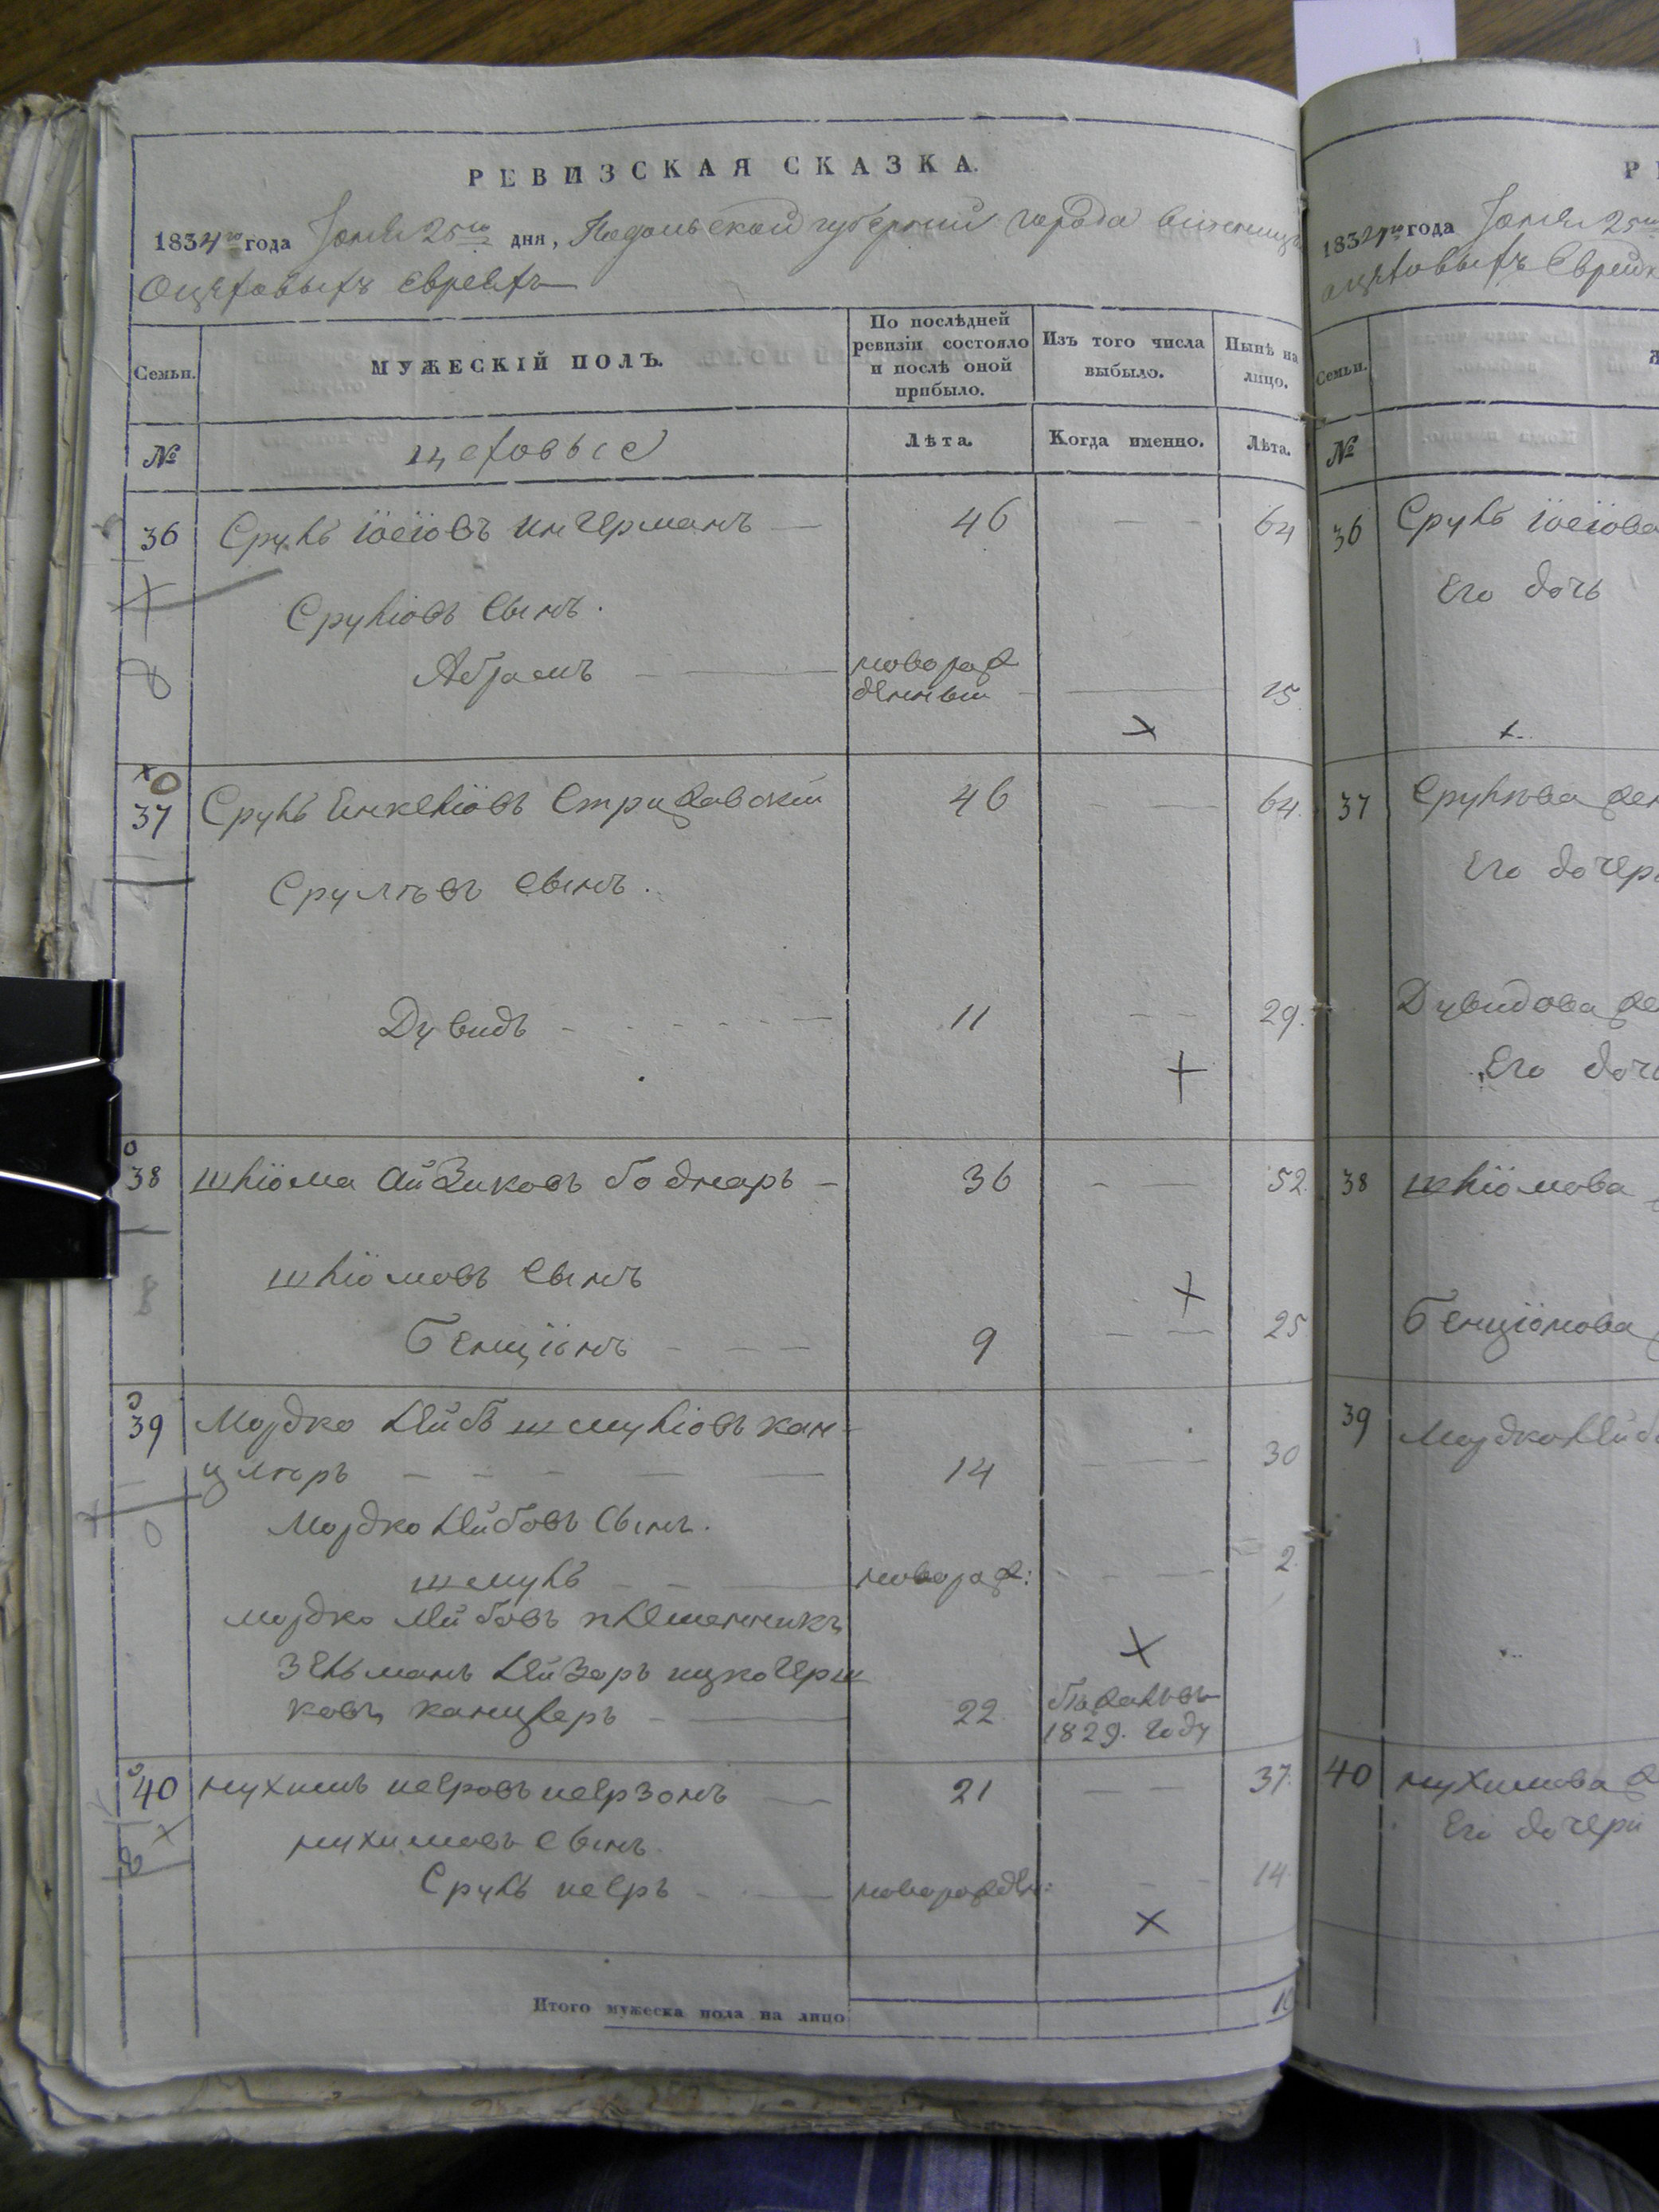 РЕВИЗСКАЯ СКАЗКА.
1834го года Іюня 25го дня, Подольской губерніи города Винницы
О цеховыхъ евреяхъ
Семьи.
МУЖЕСКІЙ ПОЛЪ.
По послѣдней ревизіи состояло и послѣ оной прибыло.
Изъ того числа выбыло.
Нынѣ на лицо.
№
цеховые
Лѣта.
Когда именно.
Лѣта.
36 Сруль Іосіовъ Ингерманъ — 46 — — 64
Сруліовъ сынъ.
Абрамъ — новорож
денный — 15
37 Сруль Стрижавскій 46 — — 64
Срулѣвъ сынъ.
Дувидъ — 11 — — 29
38 Шліома Айзиковъ Боднаръ — 36 — — 52
Шліомовъ сынъ
Бенціонъ — 9 — — 25
39 Мордко Лейбъ Шмуліовъ Кан-
цлѣръ — 14 — — 30
Мордко Лейбовъ сынъ.
Шмуль — новорож: — — 2
Мордко Лейбовъ племенникъ
Зельманъ Лейзоръ Ицко Герш
ковъ Канцлеръ — 22
1829. году
40 Нухимъ 21 — — 37
Нухимовъ сынъ
Сруль — новорожден: — — 14
Итого мужеска пола на лицо 10
1834го года Іюня 25го
о цѣховыхъ
Семьи.
№
36 Сруль Іосіова
Его дочь
37 Срулѣва жен
Его дочери
Дувидова же
Его дочь
38 Шліомова
Бенціонова
39 Мордко Лейб
40 Нухимова ж
Его дочери